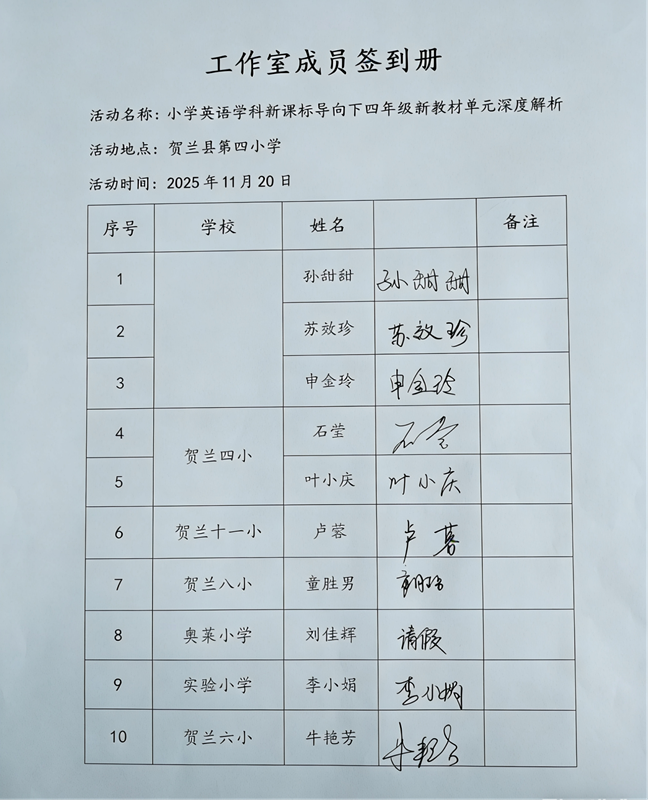 工作室成员签到册
活动名称：小学英语学科新课标导向下四年级新教材单元深度解析
活动地点：贺兰县第四小学
活动时间：2025年11月20日
序号 学校 姓名 备注
1 孙甜甜 孙甜甜
2 苏效珍 苏效珍
3 申金玲 申金玲
4 贺兰四小 石莹 石莹
5 叶小庆 叶小庆
6 贺兰十一小 卢蓉 卢蓉
7 贺兰八小 童胜男 童胜男
8 奥莱小学 刘佳辉 请假
9 实验小学 李小娟 李小娟
10 贺兰六小 牛艳芳 牛艳芳